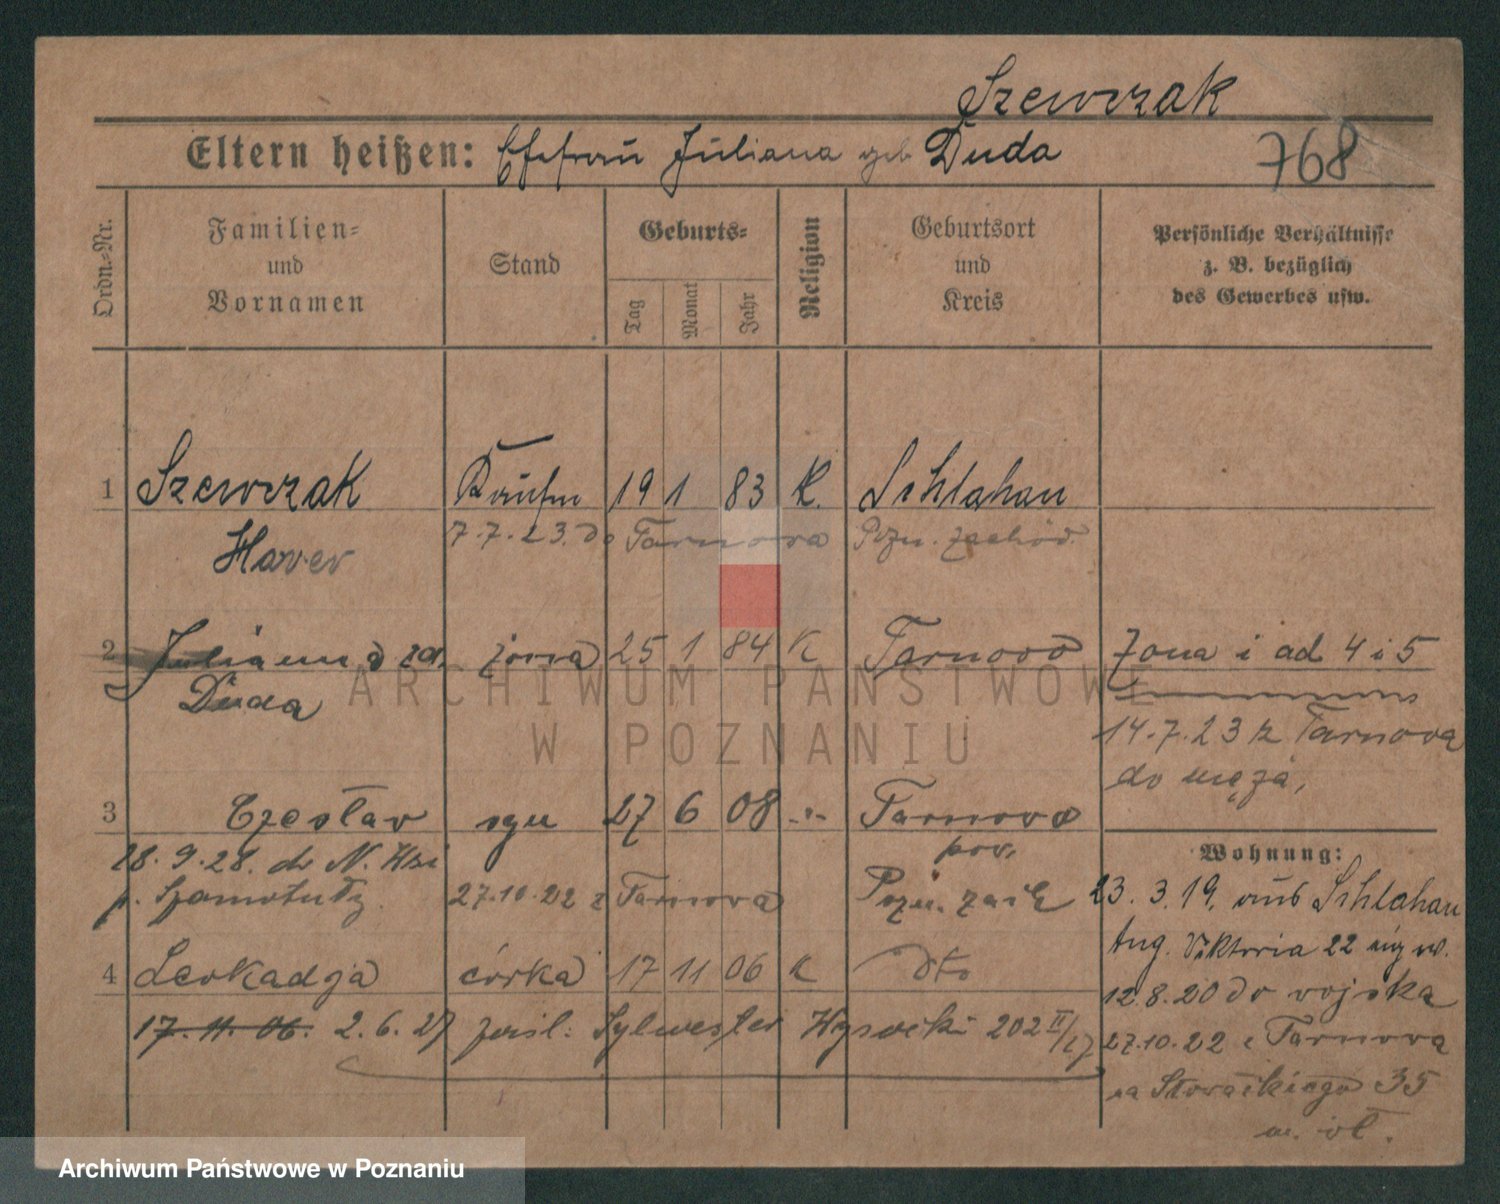 Szewczak
Eltern heißen: Ehefrau Juliana geb Duda 768
Ordn.-Nr. Familien- und Vornamen Stand Geburts- Tag Monat Jahr Religion Geburtsort und Kreis Persönliche Verhältnisse z. B. bezüglich des Gewerbes usw.
1 Szewczak Kaufm 19 1 83 K. Schlahau
7.7.23. do Tarnova Pozn. zachód.
Xaver
2 Julianna za. żona 25 1 84 K Tarnowo Żona i ad 4 i 5
Duda
14.7.23 z Tarnova
do męża,
3 Czesław syn 27 6 08 -"- Tarnovo
pow.
Wohnung:
28.9.28. do N.
p. Szamotuły 27.10.22 z Tarnova Pozn. zach 23.3.19. aus Schlahau
Aug. Viktoria 22
4 Leokadja córka 17 11 06 K dto
12.8.20 do vojska
17.11.06. 2.6.27 zaśl. Sylwester Wysocki 202 II/27
27.10.22 z Tarnova
na Słowackiego 35
ARCHIWUM PAŃSTWOWE
W POZNANIU
Archiwum Państwowe w Poznaniu